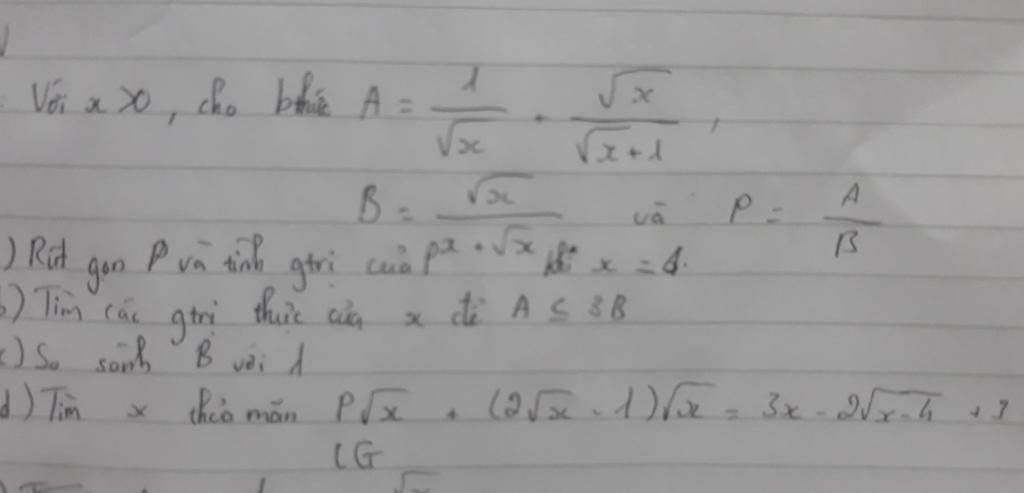 Với x > 0, cho bthức A = 1/√x + √x/(√x + 1),
B = √x/(x + √x) và P = A/B
) Rút gọn P và tính gtrị của P khi x = 4.
b) Tìm các gtrị thực của x để A ≤ 3B
c) So sánh B với 1
d) Tìm x thỏa mãn P√x + (2√x - 1)√x = 3x - 2√(x-4) + 3
LG